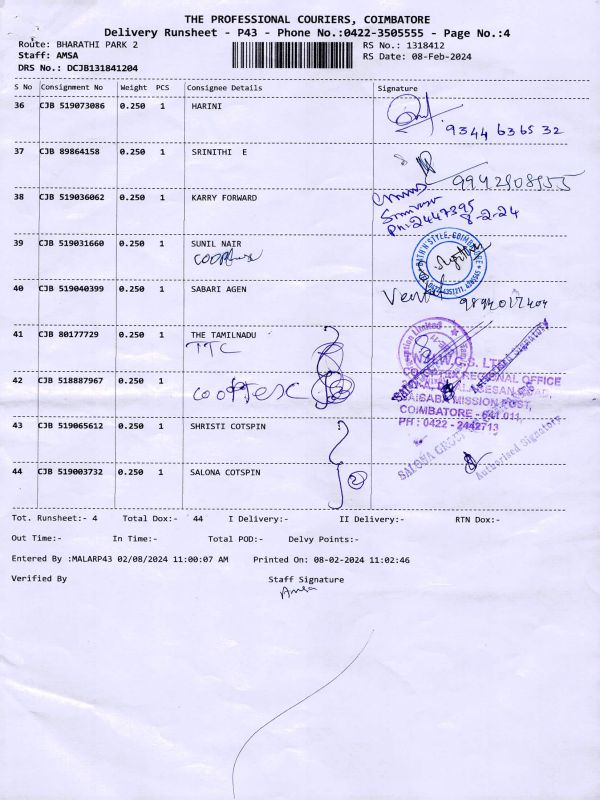 THE PROFESSIONAL COURIERS, COIMBATORE
Delivery Runsheet - P43 - Phone No.:0422-3505555 - Page No.:4
Route: BHARATHI PARK 2 RS No.: 1318412
Staff: AMSA RS Date: 08-Feb-2024
DRS No.: DCJB131841204
S No Consignment No Weight PCS Consignee Details Signature
36 CJB 519073086 0.250 1 HARINI
9344 636532
37 CJB 89864158 0.250 1 SRINITHI E
38 CJB 519036062 0.250 1 KARRY FORWARD
Ph: 2447395
8-2-24
39 CJB 519031660 0.250 1 SUNIL NAIR
40 CJB 519040399 0.250 1 SABARI AGEN
41 CJB 80177729 0.250 1 THE TAMILNADU
TTC
T.N.H.W.C.S. LTD
COOPTEX REGIONAL OFFICE
42 CJB 518887967 0.250 1
cooptex
SAIBABA MISSION POST,
COIMBATORE - 641 011,
PH : 0422 - 2442713
43 CJB 519065612 0.250 1 SHRISTI COTSPIN
SALONA GROUP
Authorised Signatory
44 CJB 519003732 0.250 1 SALONA COTSPIN
2
Tot. Runsheet:- 4 Total Dox:- 44 I Delivery:- II Delivery:- RTN Dox:-
Out Time:- In Time:- Total POD:- Delvy Points:-
Entered By :MALARP43 02/08/2024 11:00:07 AM Printed On: 08-02-2024 11:02:46
Verified By Staff Signature
Amsa